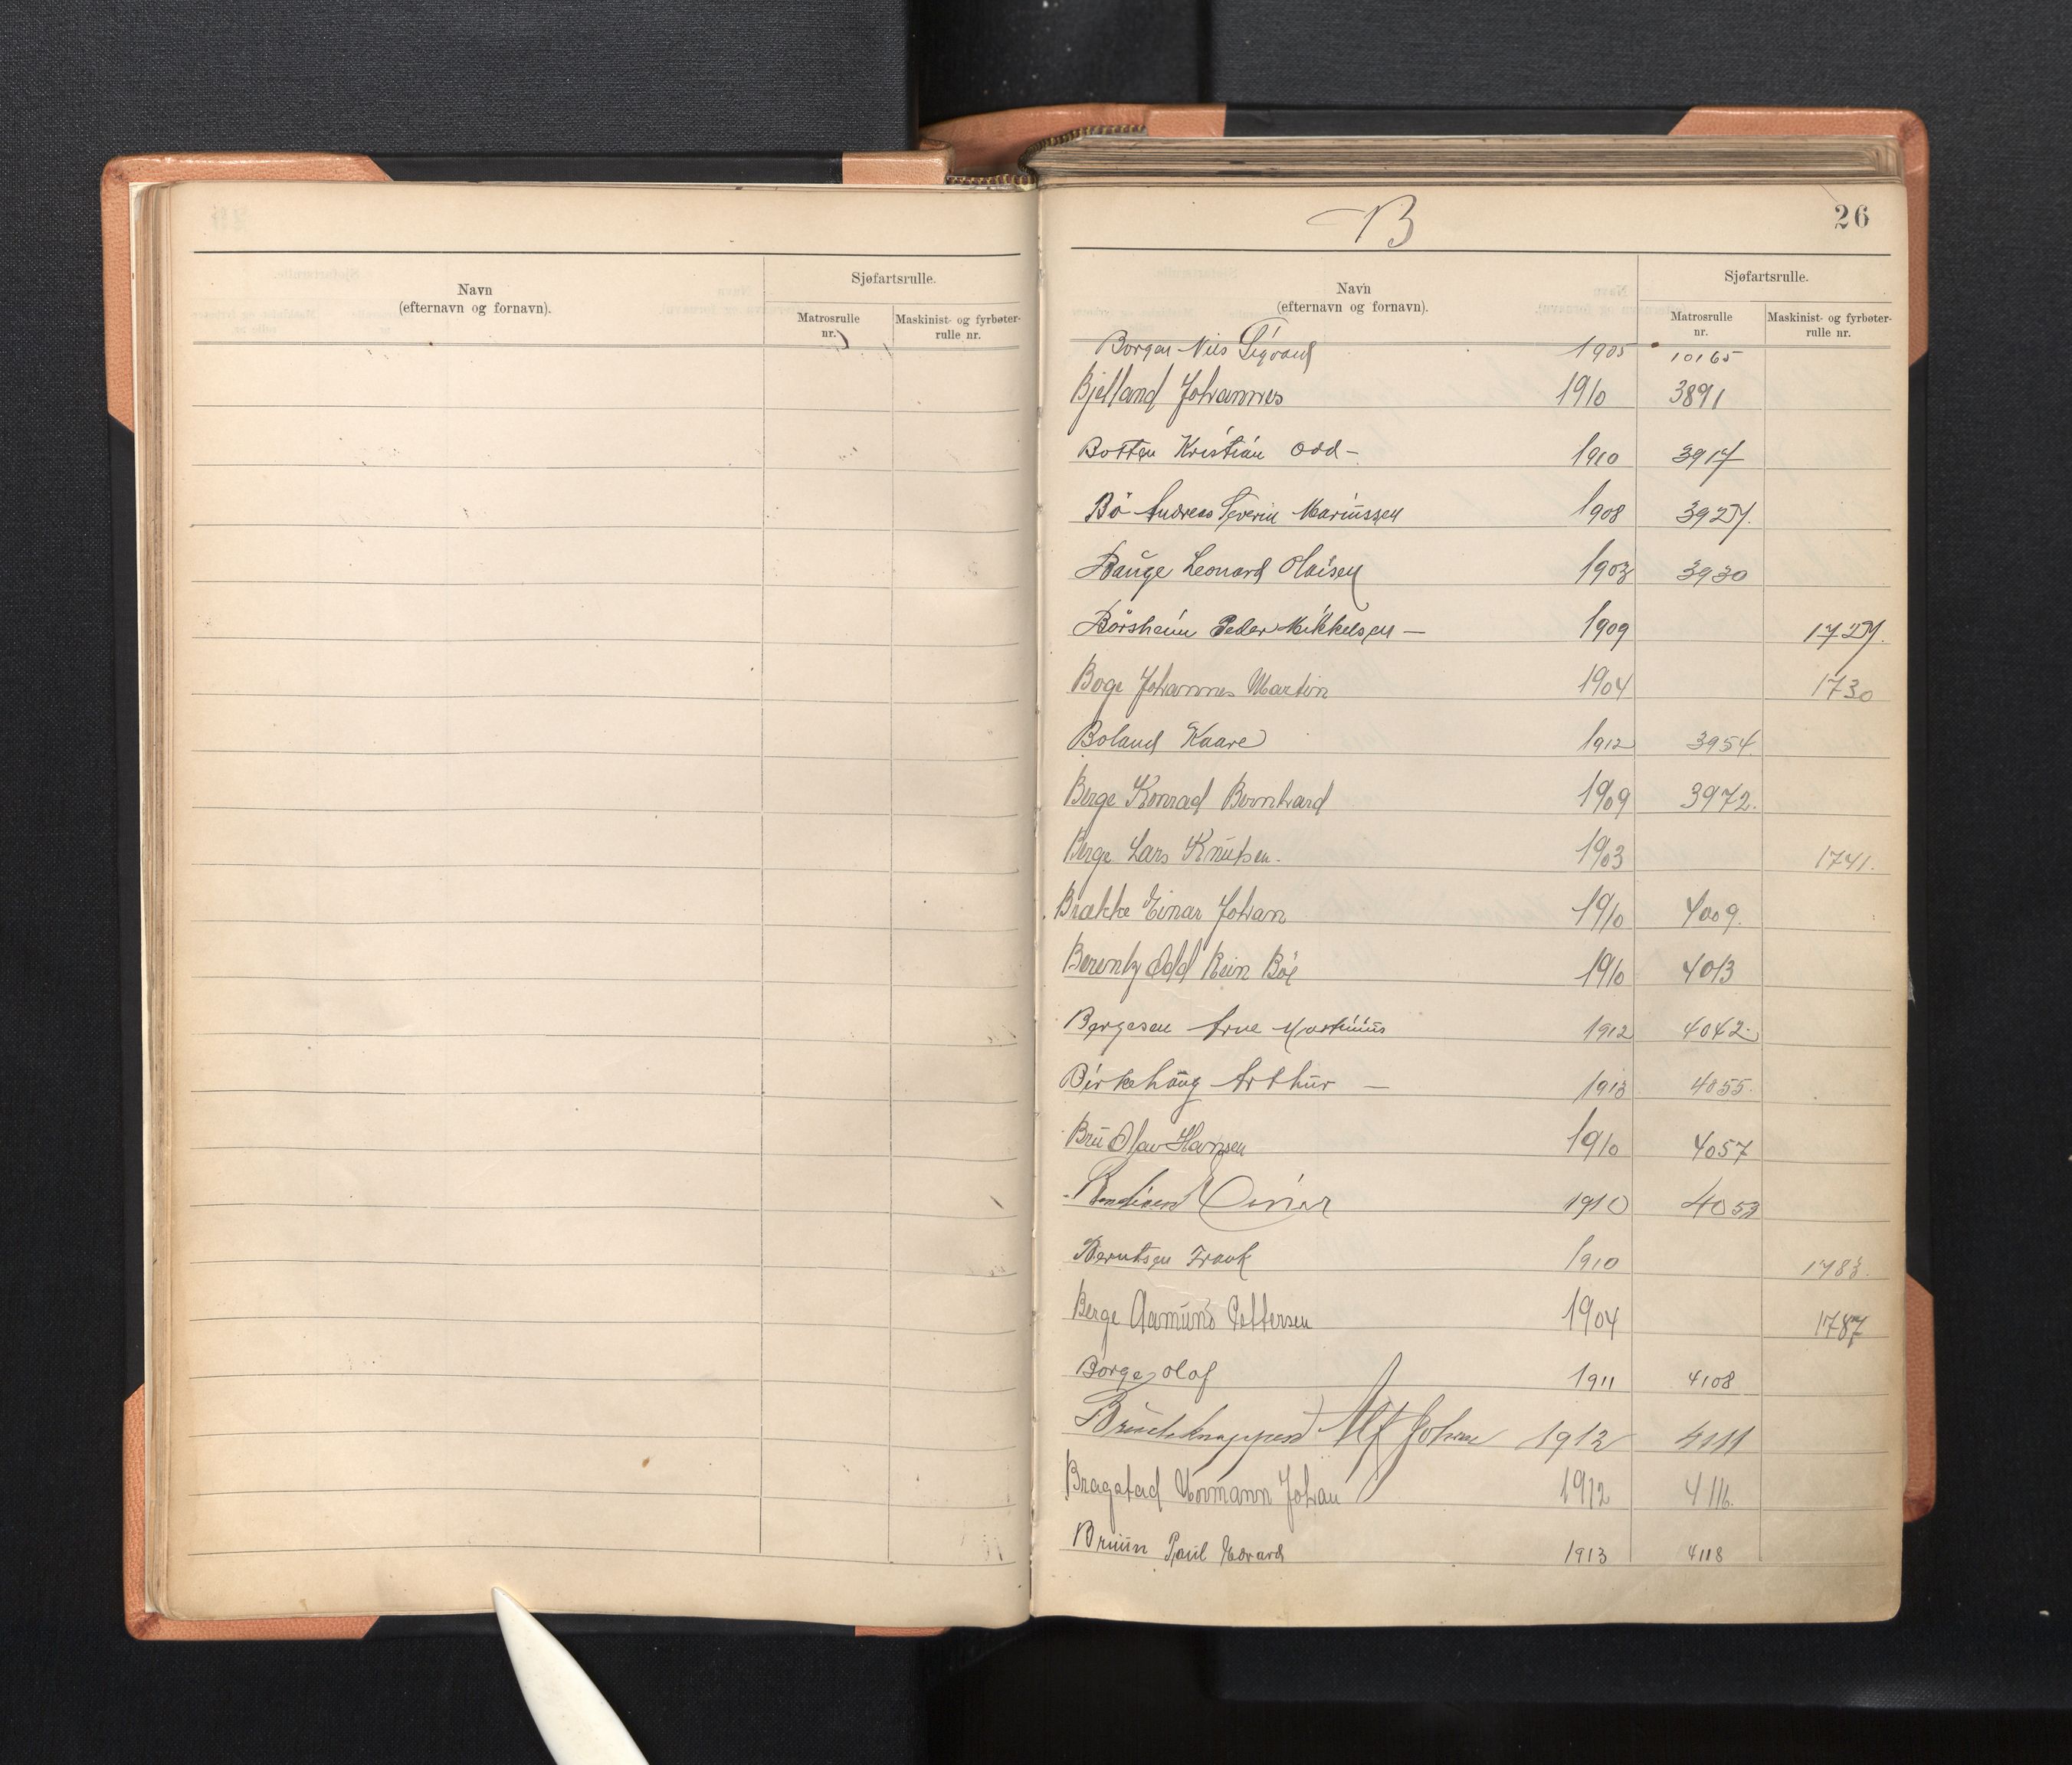 Navn
(efternavn og fornavn).
Sjøfartsrulle.
Matrosrulle
nr.
Maskinist- og fyrbøter-
rulle nr.
B
26
Navn
(efternavn og fornavn).
Sjøfartsrulle.
Matrosrulle
nr.
Maskinist- og fyrbøter-
rulle nr.
Borgen Nils Sigvald 1905 10165
Bjelland Johannes 1910 3891
Botten Kristian Odd - 1910 3917
Bö Andreas Severin Mariussen 1908 3927.
Bauge Leonard Olaisen 1903 3930
Börsheim Peder Mikkelsen — 1909 1727.
Boge Johannes Martin 1904 1730
Boland Kaare 1912 3954
Berge Konrad Bernhard 1909 3972.
Berge Lars Knutsen. 1903 1741.
Brække Einar Johan 1910 4009.
Berentz Odd Rein Böe 1910 4013
Børgesen Arne Martinius 1912 4042.
Birkehaug Arthur — 1913 4055.
Bru Olav Hansen 1910 4057
Einar 1910 4053
Berntsen Frank 1910 1783.
Berge Aamund Pettersen 1904 1787
Borge, Olaf 1911 4108
Alf Johan 1912 4111
Bragstad Normann Johan 1912 4116.
Bruun Paul Edvard 1913 4118